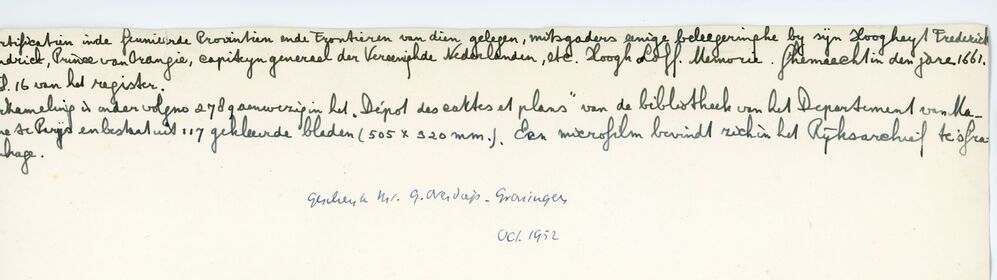 rtificatien inde geunieerde Provintien ende Frontieren van dien gelegen, mitsgaders eenige beleegeringhe by sijn Hoogheyt Frederick
ndrick, Prince van Orangie, capiteyn generael der Vereenighde Nederlanden, etc. Hoogh Loff. Memorie. Ghemaeckt in den jare 1661.
16 van het register.
rzameling is onder volgno 278 aanwezig in het "Dépot des cartes et plans" van de bibliotheek van het Departement van Ma-
ne te Parijs en bestaat uit 117 gekleurde bladen (505 x 320 mm.). Een microfilm bevindt zich in het Rijksarchief te 's Gra-
nhage.
geschenk Mr. G. Overdiep - Groningen
Oct. 1952